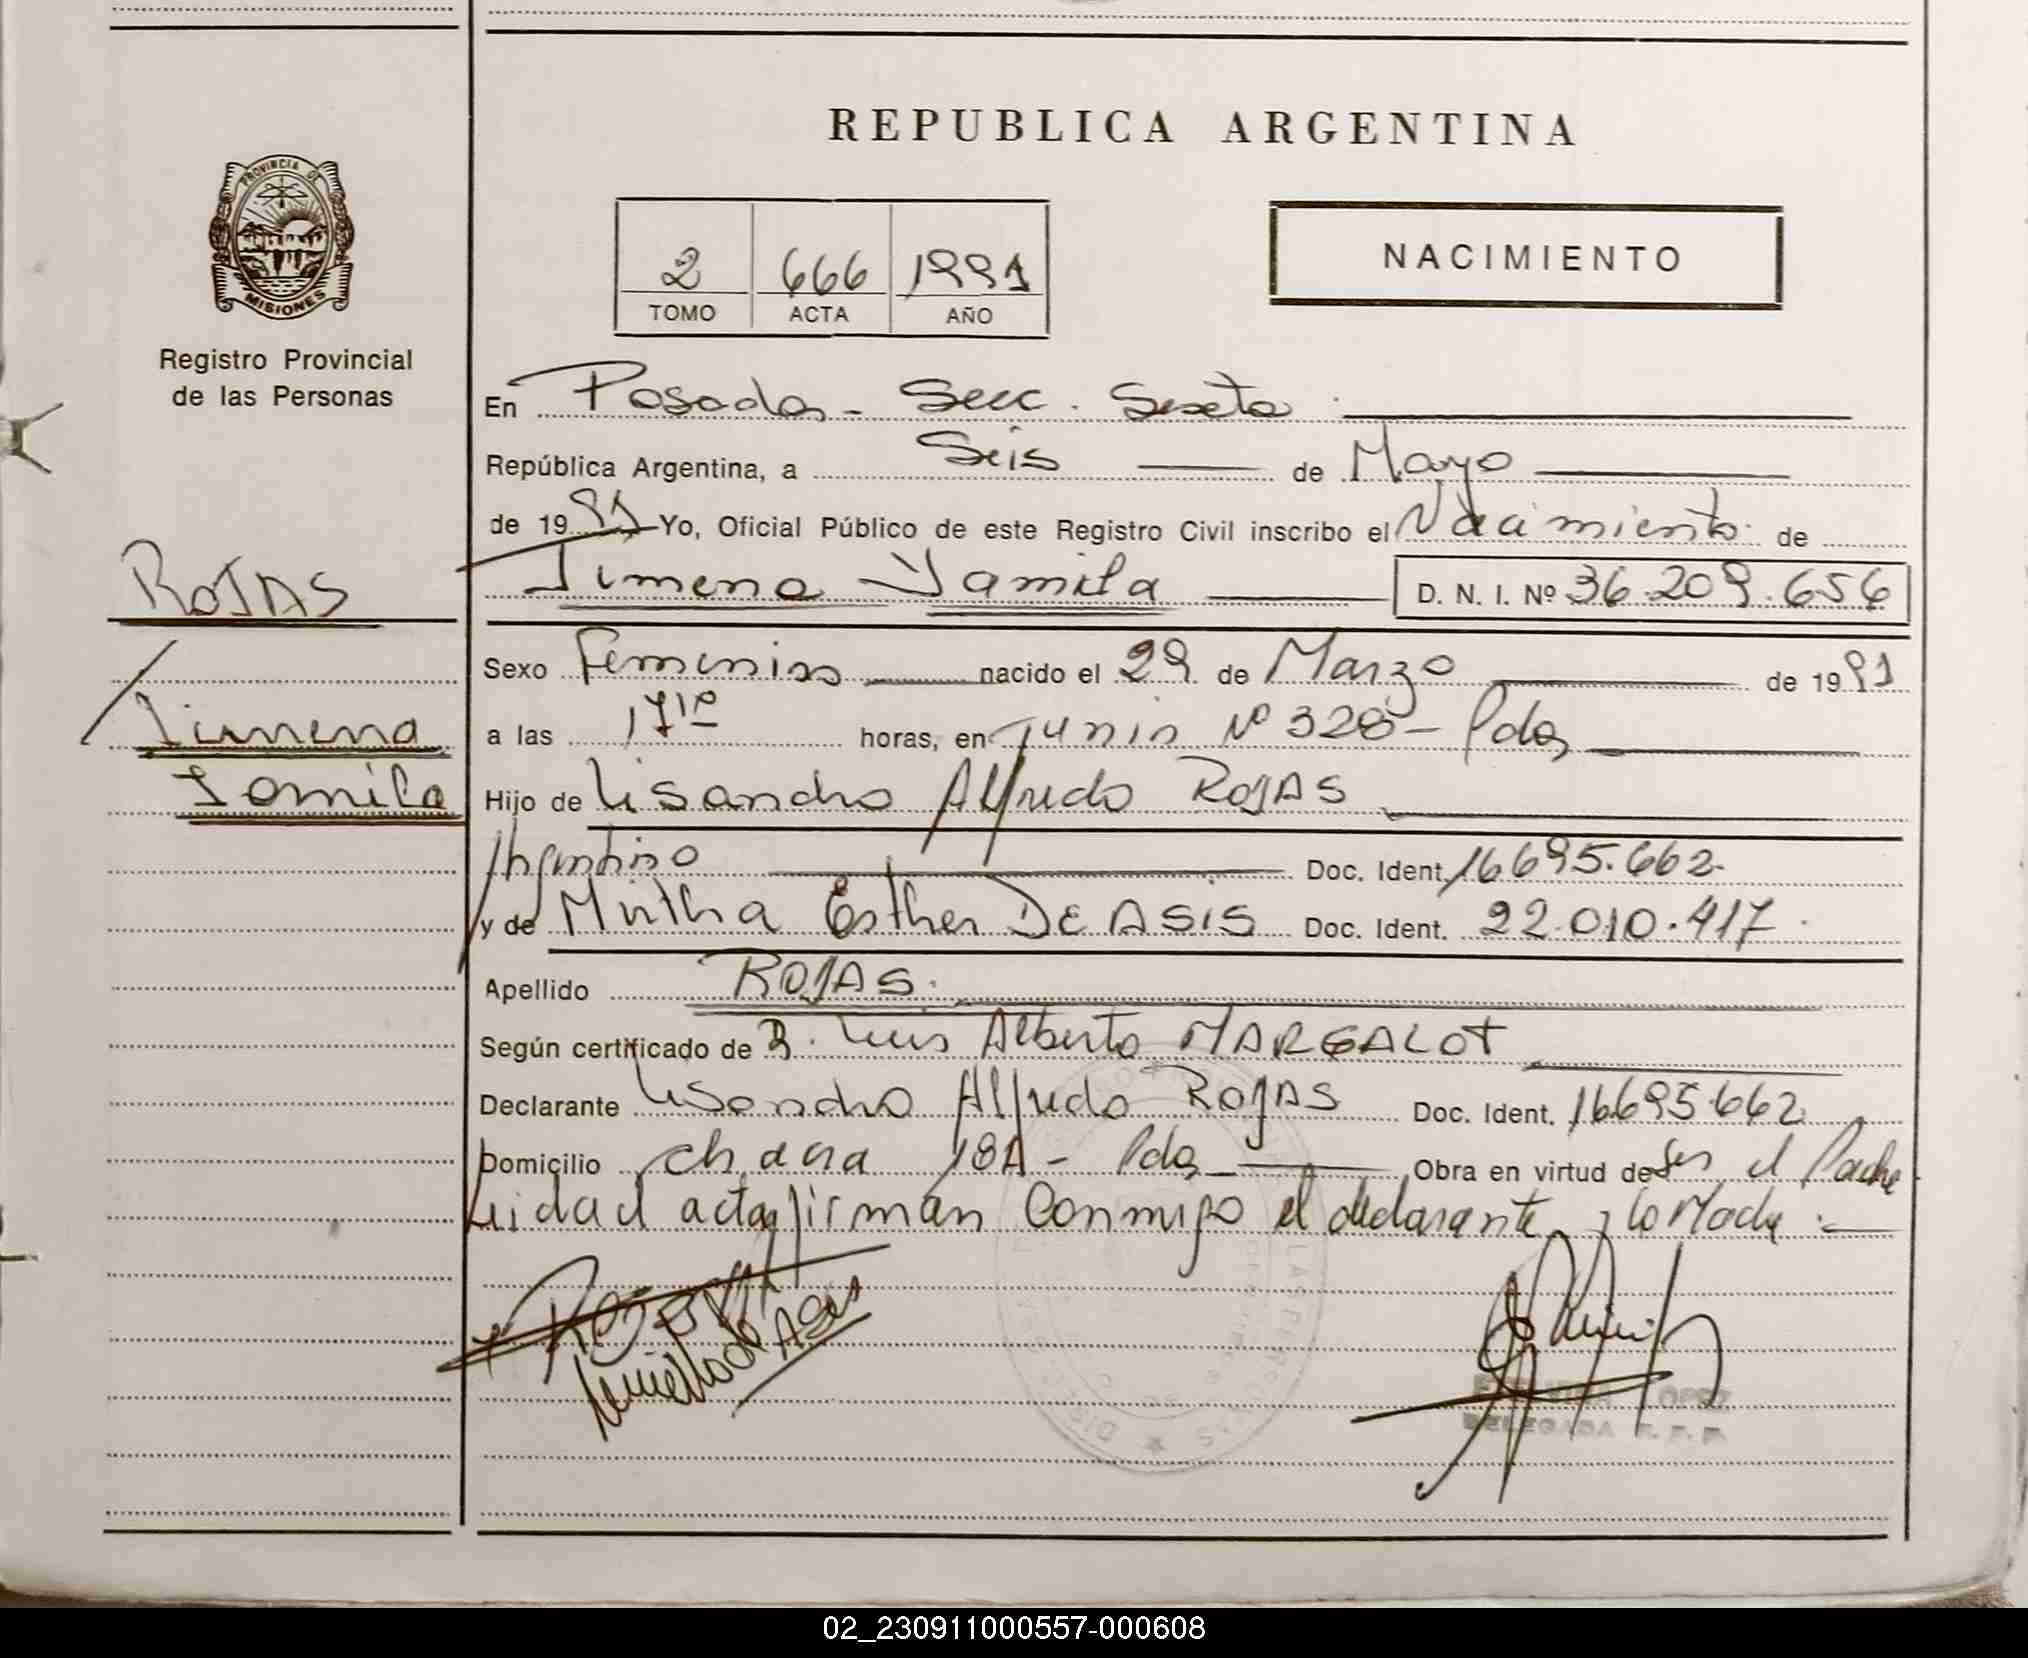 REPUBLICA ARGENTINA
PROVINCIA DE
MISIONES
Registro Provincial
de las Personas
2 666 1991
TOMO ACTA AÑO
NACIMIENTO
En Posadas - Secc. Sexta
República Argentina, a Seis de Mayo
de 1991 Yo, Oficial Público de este Registro Civil inscribo el Nacimiento de
Jimena Yamila D. N. I. Nº 36.209.656
ROJAS
Jimena
Yamila
Sexo Femenino nacido el 29 de Marzo de 1991
a las 17 horas, en Junin Nº 328 - Pdas
Hijo de Lisandro Alfredo ROJAS
Argentino Doc. Ident. 16695.662.
y de Mirtha Esther DE ASIS Doc. Ident. 22.010.417
Apellido ROJAS.
Según certificado de Luis Alberto MARGALOT
Declarante Lisandro Alfredo ROJAS Doc. Ident. 16695.662
Domicilio chacra 181 - Pdas Obra en virtud de Ser el Padre
Leida el acta firman Conmigo el declarante y la Madre.
LOPEZ
DELEGADA R. P. P.
02_230911000557-000608